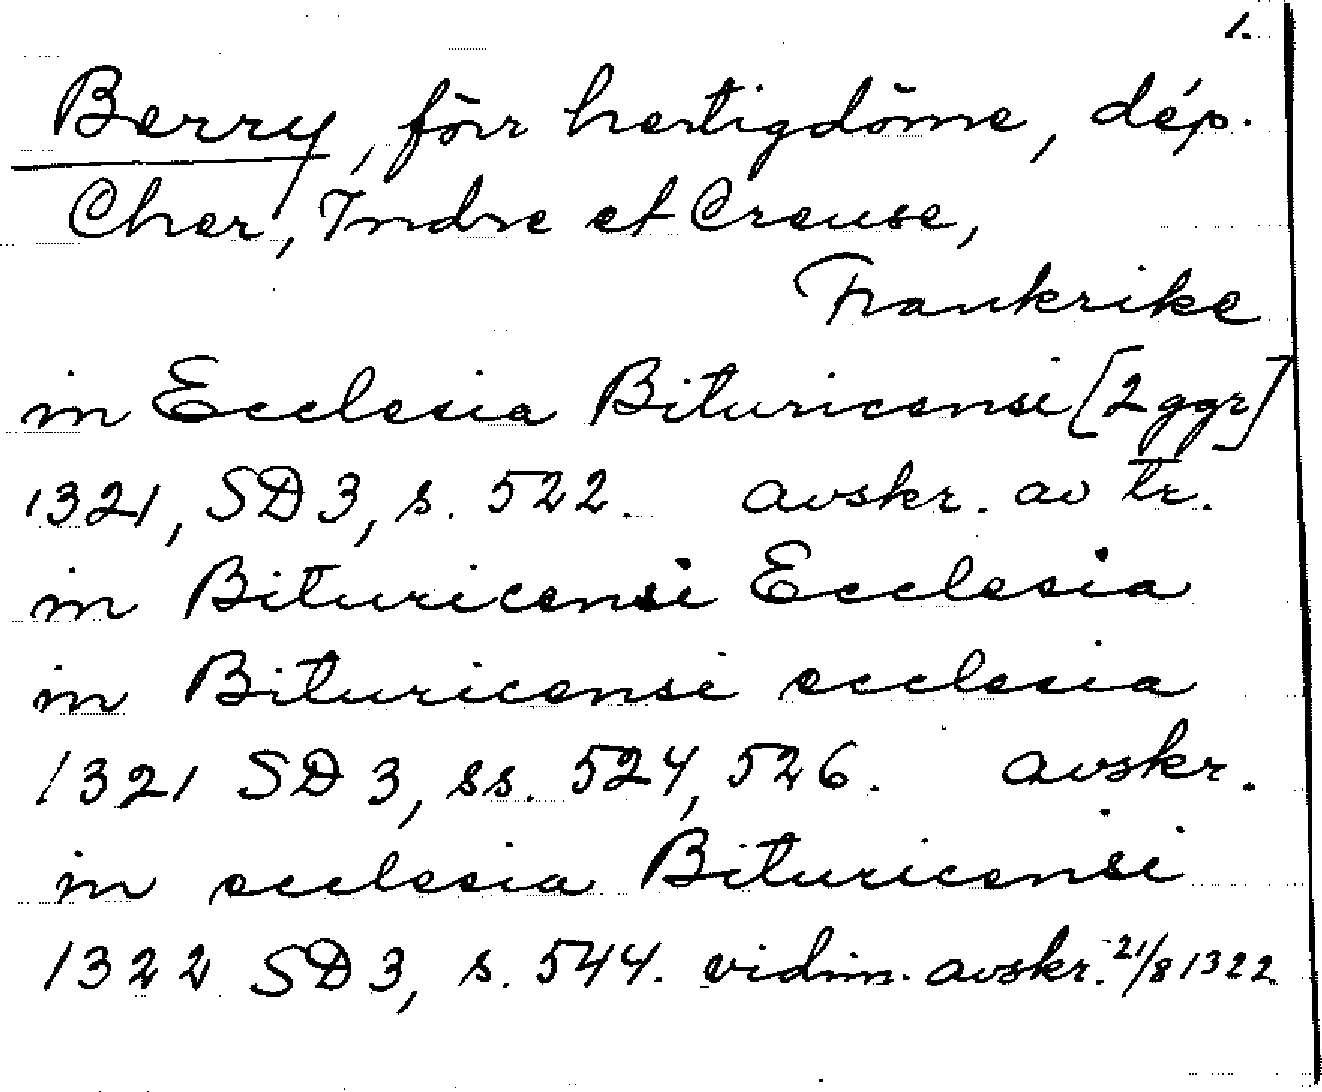 1.
Berry, förr hertigdöme, dép.
Cher, Indre et Creuse,
Frankrike
in Ecclesia Bituricensi [2 ggr]
1321, SD 3, s. 522. avskr. av tr.
in Bituricensi Ecclesia
in Bituricensi ecclesia
1321 SD 3, ss. 524, 526. avskr.
in ecclesia Bituricensi
1322 SD 3, s. 544. vidim. avskr. 21/8 1322